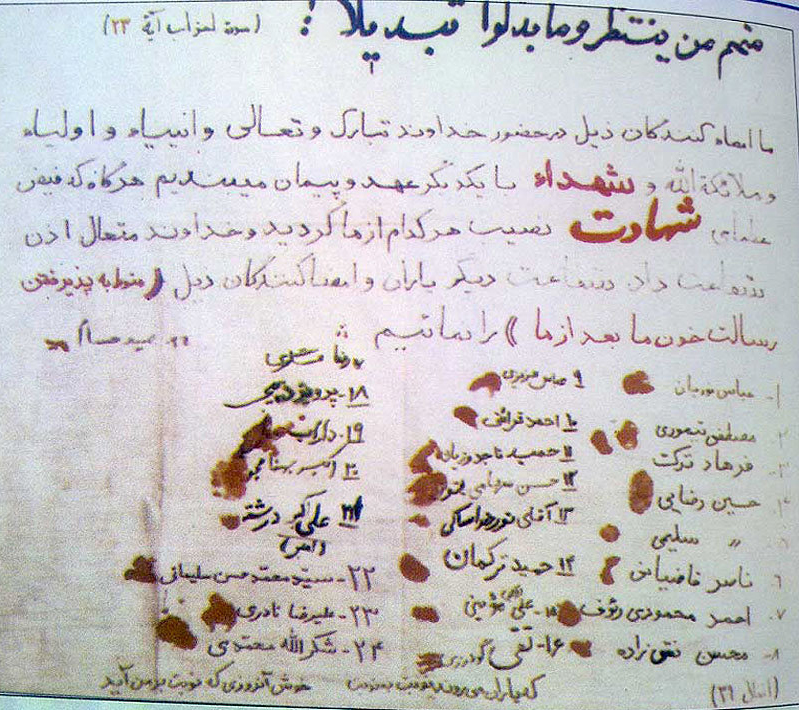 منهم من ینتظر و ما بدلوا تبدیلا! (سورة احزاب آیة ۲۳)
ما امضاء کنندگان ذیل در حضور خداوند تبارک و تعالی و انبیاء و اولیاء
و ملائکة الله و شهداء با یکدیگر عهد و پیمان میبندیم هرگاه که فیض
عظمای شهادت نصیب هر کدام از ما گردید و خداوند متعال اذن
شفاعت داد شفاعت دیگر یاران و امضا کنندگان ذیل (منوط به پذیرفتن
رسالت خون ما بعد از ما) را بنمائیم
۱- عباس نوریان
۲- مصطفی تیموری
۳- فرهاد ترکت
۴- حسین رضایی
" سلیمی
۶- ناسر قاضیانی
۷- احمد محمودی رئوف
۸- محسن نقی زاده
۹ عباس عزیزی
۱۰ احمد قرائتی
۱۱ حمید تاجدوزیان
۱۲ حسن
۱۳ آقای نورخداساکی
۱۴ حمید ترکمان
۱۵- علی مؤمنی
۱۶- تقی گودرزی
رضا
۱۸- پرویز
۱۹- داراب
۲۰
۲۱ علی اکبر درشته
۲۲- سید محمد حسن سلیمانی
۲۳- علیرضا نادری
۲۴- شکرالله معتمدی
(انفال ۲۹) که یاران می روند نوبت به نوبت خوش آنروزی که نوبت بر من آید